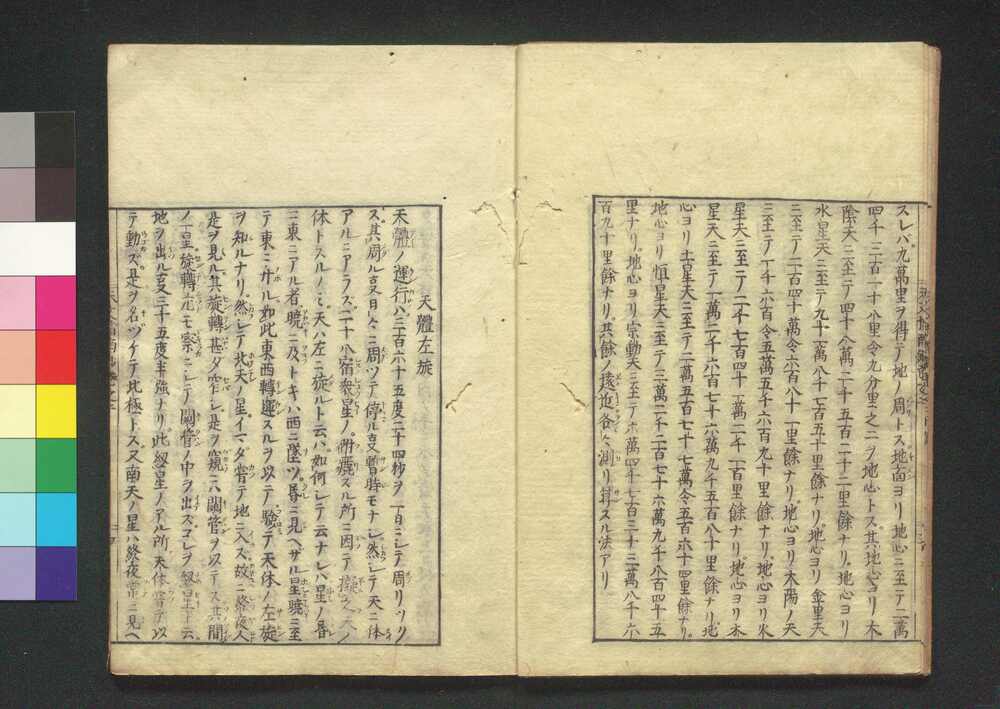 スレバ九萬里ヲ得テ地ノ周トス地面ヨリ地心ニ至テ二萬
四千三百一十八里令九分里之二ヲ地心トス其地心ヨリ太
陰天ニ至テ四十八萬二千五百二十二里餘ナリ地心ヨリ
水星天ニ至テ九十一萬八千七百五十里餘ナリ地心ヨリ金星天
ニ至テ二百四十萬令六百八十一里餘ナリ地心ヨリ太陽ノ天
ニ至テ一千六百令五萬五千六百九十里餘ナリ地心ヨリ火
星天ニ至テ二千七百四十一萬二千一百里餘ナリ地心ヨリ木
星天ニ至テ一萬二千六百七十六萬九千五百八十里餘ナリ地
心ヨリ土星天ニ至テ二萬五百七十七萬令五百六十四里餘ナリ
地心ヨリ恒星天ニ至テ三萬二千二百七十六萬九千八百四十五
里ナリ地心ヨリ宗動天ニ至テ六萬四千七百三十三萬八千六
百九十里餘ナリ其餘ノ遠近各々測リ算スル法アリ
天體左旋
天體ノ運行ハ三百六十五度二十四秒ヲ一日ニシテ周リツクリ
ス其周ル亥日々ニ周ツテ停ル亥暫時モナシ然レテ天ニ体
アルニアラズ二十八宿衆星ノ附麗スル所ニ因テ擬之天ノ
体トスルノミ天ハ左ニ旋ルト云ハ如何シテ云ナレハ星ノ昏
ニ東ニアル者曉ニ及トキハ西ニ墜ツ昏ニ見ヘザル星曉ニ至
テ東ニ升ル如此東西轉運スルヲ以テ驗テ天体ノ左旋
ヲ知ルナリ然レテ北天ノ星イマダ甞テ地ニ入ス故ニ終夜人
是ヲ見ル其旋轉甚ダ窄シ是ヲ窺ニハ闚管ヲ以テス其間
ノ一星旋轉尤モ密ニシテ闚管ノ中ヲ出ズコレヲ紐星ト云
地ヲ出ル亥三十五度半強ナリ此紐星ノアル所天体甞テ以
テ動ズ是ヲ名ヅケテ北極トス又南天ノ星ハ終夜常ニ見ヘ